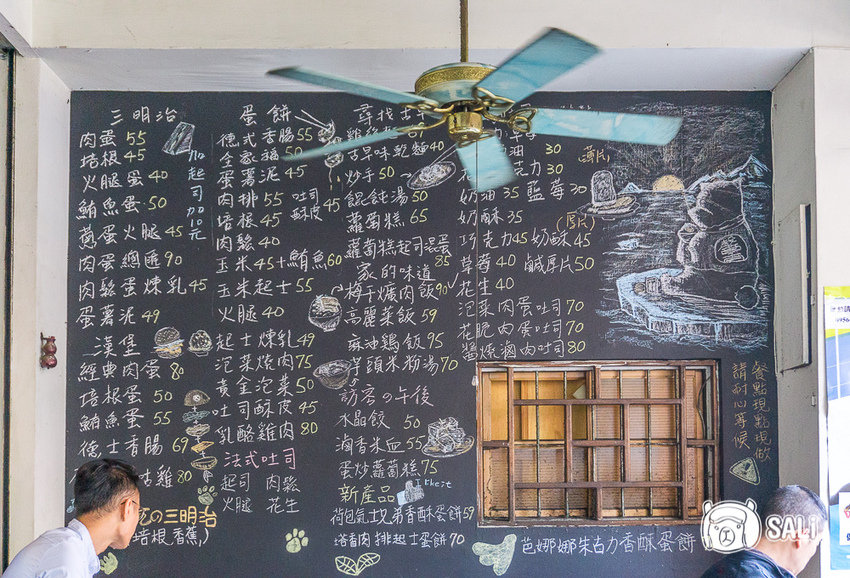 三明治
肉蛋 55
培根 45
火腿蛋 40
鮪魚蛋 50
蔥蛋火腿 45
肉蛋總匯 90
肉鬆蛋煉乳 45
蛋薯泥 49
加起司加10元
漢堡
經典肉蛋 80
培根蛋 50
鮪魚蛋 55
德士香腸 69
の三明治
培根,香蕉,
蛋餅
德式香腸 55
全家福 50
蛋薯泥 45
肉排 55
培根 45
吐司酥皮 45
肉鬆 40
玉米 45+鮪魚 60
玉米起士 55
火腿 40
起士煉乳 49
泡菜燒肉 75
黃金泡菜 50
吐司酥皮 45
乳酪雞肉 80
法式吐司
起司 肉鬆
火腿 花生
尋找古早
古早味乾麵 40
炒手 50
餛飩湯 50
蘿蔔糕 65
蘿蔔糕起司混蛋 85
家的味道
梅干爌肉飯 90
高麗菜飯 59
麻油鴨飯 95
芋頭米粉湯 70
訪客の午後
水晶餃 50
滷香米血 55
蛋炒蘿蔔糕 75
新產品
荷包氣士兄弟香酥蛋餅 59
塔香肉排起士蛋餅 70
(薄片)
油 30
克力 30
奶油 35 藍莓 30
奶酥 35
(厚片)
巧克力 45 奶酥 45
草莓 40 鹹厚片 50
花生 40
泡菜肉蛋吐司 70
花脆肉蛋吐司 70
醬燒滷肉吐司 80
餐點現點現做
請耐心等候
芭娜娜朱古力香酥蛋餅
SALi